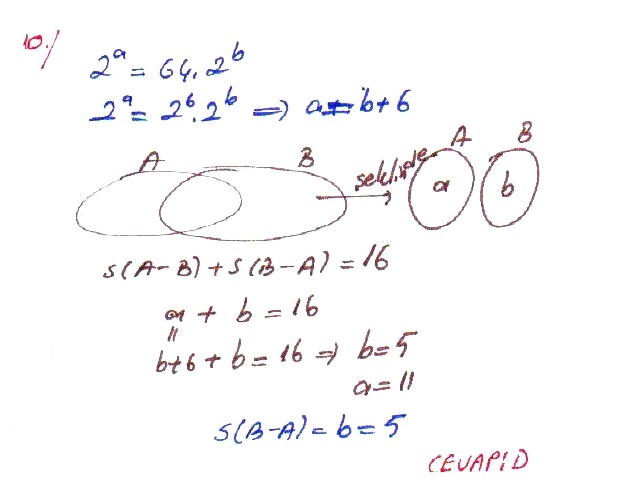 10./
2^a = 64. 2^b
2^a = 2^6. 2^b ⇒ a = b+6
A B şeklinde A B
a b
s(A-B)+s(B-A)=16
a + b = 16
"
b+6+b=16 ⇒ b=5
a=11
s(B-A)=b=5
CEVAP:D